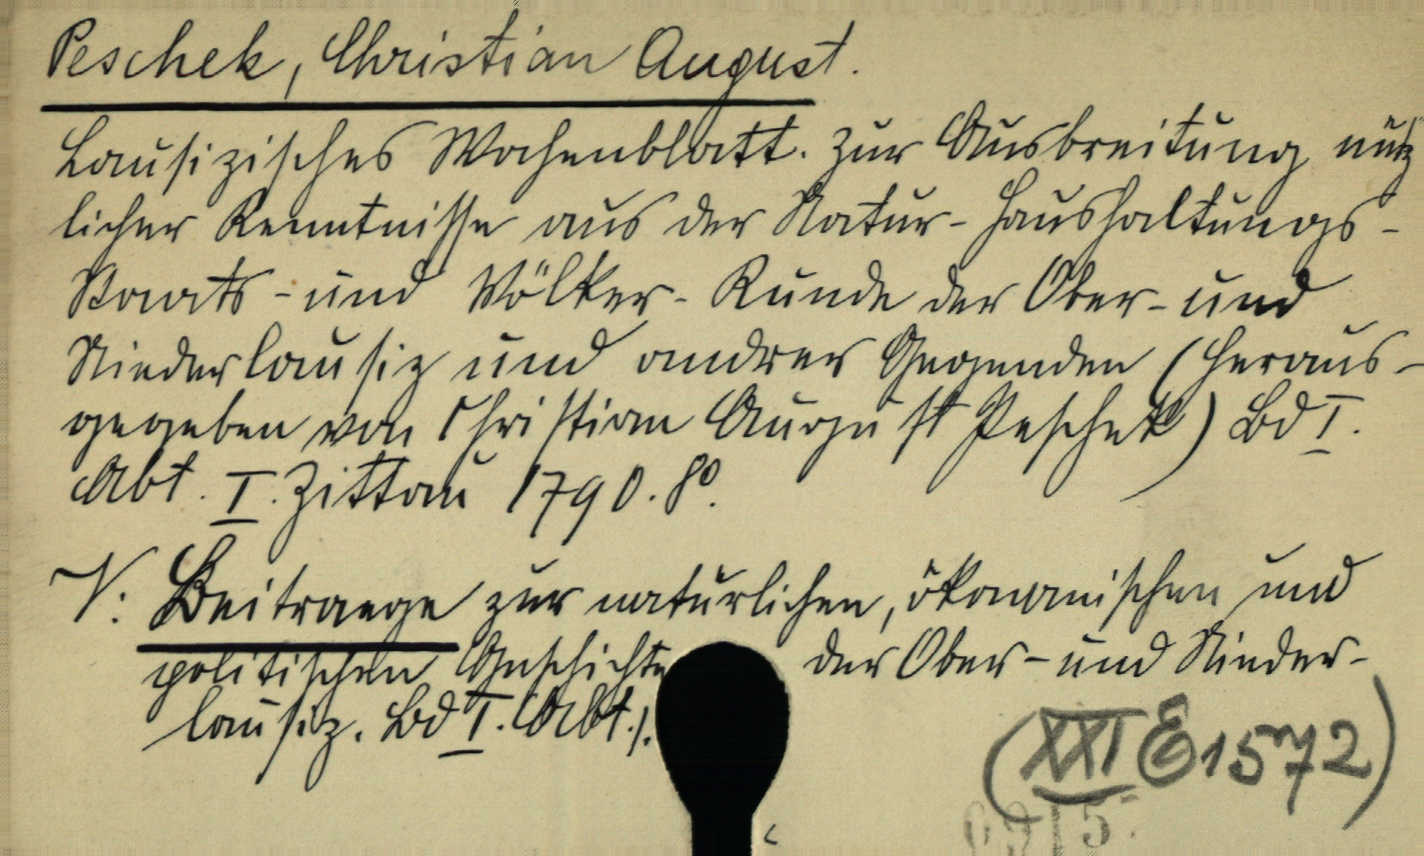 Peschek, Christian August.
Lausizisches Wochenblatt. Zur Ausbreitung nütz
licher Kenntnisse aus der Natur-Haushaltungs-
Staats-und Völker-Kunde der Ober-und
Niederlausiz und andrer Gegenden (heraus-
gegeben von Christian August Peschek) Bd I.
Abt. I. Zittau 1790. 8°.
V: Beitraege zur natürlichen, ökonomischen und
politischen Geschichte der Ober-und Nieder-
lausiz. Bd I. Abt. 1.
(XXI E 1572)